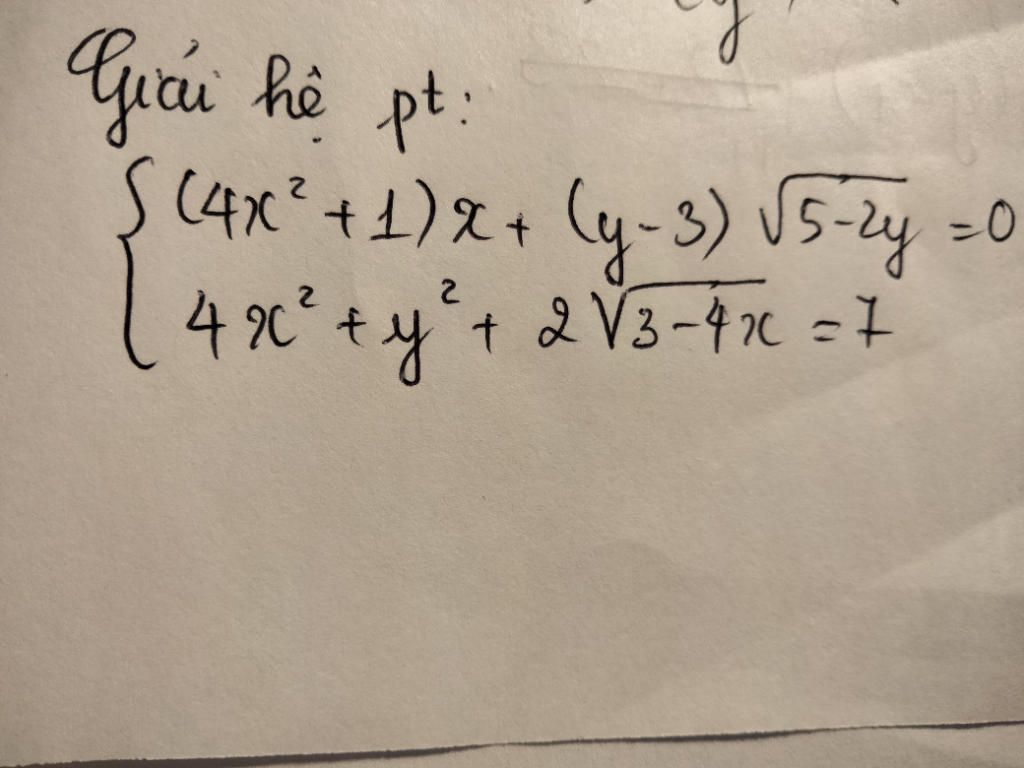 Giải hệ pt:
{ (4x² + 1)x + (y - 3) √(5-2y) = 0
4x² + y² + 2√(3-4x) = 7